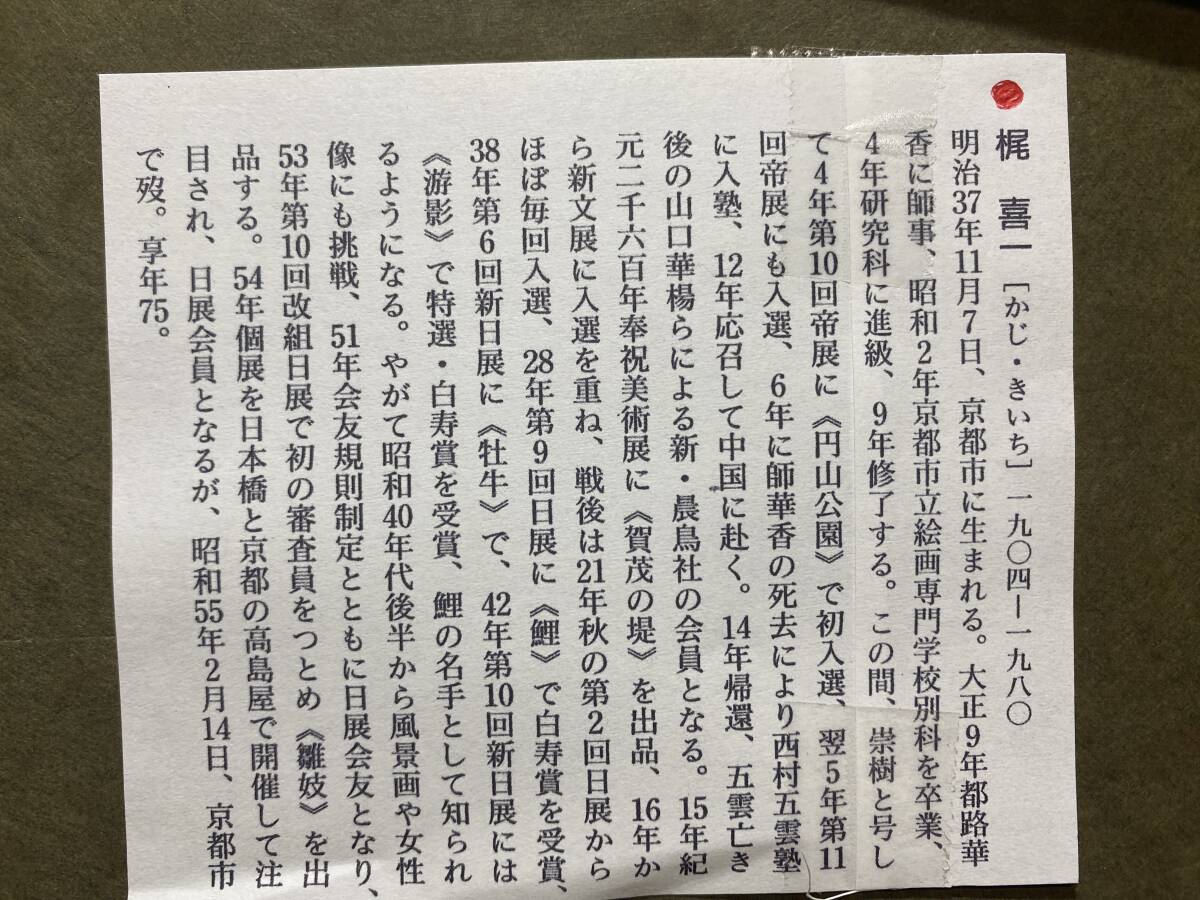 梶 喜一 [かじ・きいち] 一九〇四ー一九八〇
明治37年11月7日、京都市に生まれる。大正9年都路華
香に師事、昭和2年京都市立絵画専門学校別科を卒業、
4年研究科に進級、9年修了する。この間、崇樹と号し
て4年第10回帝展に《円山公園》で初入選、翌5年第11
回帝展にも入選、6年に師華香の死去により西村五雲塾
に入塾、12年応召して中国に赴く。14年帰還、五雲亡き
後の山口華楊らによる新・晨鳥社の会員となる。15年紀
元二千六百年奉祝美術展に《賀茂の堤》を出品、16年か
ら新文展に入選を重ね、戦後は21年秋の第2回日展から
ほぼ毎回入選、28年第9回日展に《鯉》で白寿賞を受賞、
38年第6回新日展に《牡牛》で、42年第10回新日展には
《游影》で特選・白寿賞を受賞、鯉の名手として知られ
るようになる。やがて昭和40年代後半から風景画や女性
像にも挑戦、51年会友規則制定とともに日展会友となり、
53年第10回改組日展で初の審査員をつとめ《雛妓》を出
品する。54年個展を日本橋と京都の高島屋で開催して注
目され、日展会員となるが、昭和55年2月14日、京都市
で歿。享年75。